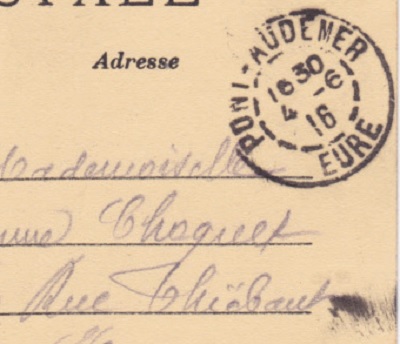 Adresse
PONT-AUDEMER
16 30
4 - 6
16
EURE
Mademoiselle
Choquet
Rue Thiébaut